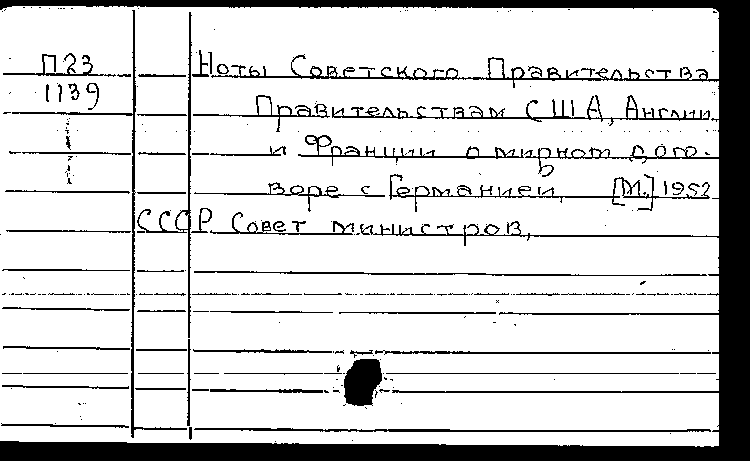 П23 Ноты Советского Правительства
1139 Правительствам США, Англии
и Франции о мирном дого-
воре с Германией, [М.] 1952
СССР Совет министров,